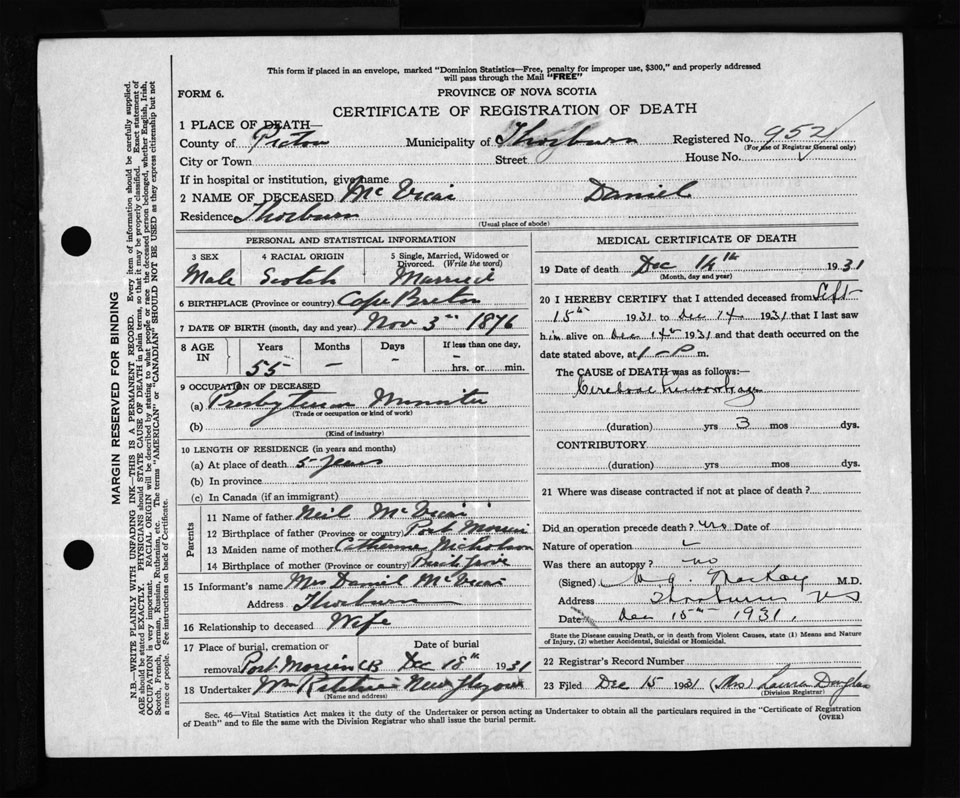 This form if placed in an envelope, marked "Dominion Statistics—Free, penalty for improper use, $300," and properly addressed
will pass through the Mail "FREE"
FORM 6.
PROVINCE OF NOVA SCOTIA
CERTIFICATE OF REGISTRATION OF DEATH
1 PLACE OF DEATH—
County of Pictou Municipality of Thorburn Registered No. 952
(For use of Registrar General only)
City or Town Street House No.
If in hospital or institution, give name
2 NAME OF DECEASED McVicar Daniel
Residence Thorburn
(Usual place of abode)
PERSONAL AND STATISTICAL INFORMATION
3 SEX 4 RACIAL ORIGIN 5 Single, Married, Widowed or Divorced. (Write the word)
Male Scotch Married
6 BIRTHPLACE (Province or country) Cape Breton
7 DATE OF BIRTH (month, day and year) Nov 3rd 1876
8 AGE IN Years Months Days If less than one day,
55 — — — hrs. or min.
9 OCCUPATION OF DECEASED
(a) Presbyterian Minister
(Trade or occupation or kind of work)
(b)
(Kind of industry)
10 LENGTH OF RESIDENCE (in years and months)
(a) At place of death 5 years
(b) In province
(c) In Canada (if an immigrant)
Parents
11 Name of father Neil McVicar
12 Birthplace of father (Province or country) Port Morien
13 Maiden name of mother Catherine Nicholson
14 Birthplace of mother
15 Informant's name Mrs Daniel McVicar
Address Thorburn
16 Relationship to deceased Wife
17 Place of burial, cremation or removal Port Morien CB Date of burial Dec 18th 1931
18 Undertaker Wm New Glasgow
(Name and address)
MEDICAL CERTIFICATE OF DEATH
19 Date of death Dec 14th 1931
(Month, day and year)
20 I HEREBY CERTIFY that I attended deceased from Sept
15th 1931 to Dec 14 1931 that I last saw
him alive on Dec 14th 1931 and that death occurred on
date stated above, at m.
The CAUSE of DEATH was as follows:—
(duration) yrs 3 mos dys.
CONTRIBUTORY
(duration) yrs mos dys.
21 Where was disease contracted if not at place of death?
Did an operation precede death? Date of
Nature of operation
Was there an autopsy? no
(Signed) MacKay M.D.
Address Thorburn NS
Date Dec 15th 1931.
State the Disease causing Death, or in death from Violent Causes, state (1) Means and Nature
of Injury, (2) whether Accidental, Suicidal or Homicidal.
22 Registrar's Record Number
23 Filed Dec 15 1931 (Mrs) Laura Douglas
(Division Registrar)
Sec. 46—Vital Statistics Act makes it the duty of the Undertaker or person acting as Undertaker to obtain all the particulars required in the "Certificate of Registration
of Death" and to file the same with the Division Registrar who shall issue the burial permit.
(OVER)
MARGIN RESERVED FOR BINDING
N.B.—WRITE PLAINLY WITH UNFADING INK—THIS IS A PERMANENT RECORD. Every item of information should be carefully supplied.
AGE should be stated EXACTLY. PHYSICIANS should STATE CAUSE OF DEATH in plain terms, so that it may be properly classified. Exact statement of
OCCUPATION is very important. RACIAL ORIGIN will be described by stating to what people or race the deceased person belonged, whether English, Irish,
Scotch, French, German, Russian, Ruthenian, etc. The terms "AMERICAN" or "CANADIAN" SHOULD NOT BE USED as they express citizenship but not
a race or people. See instructions on back of Certificate.